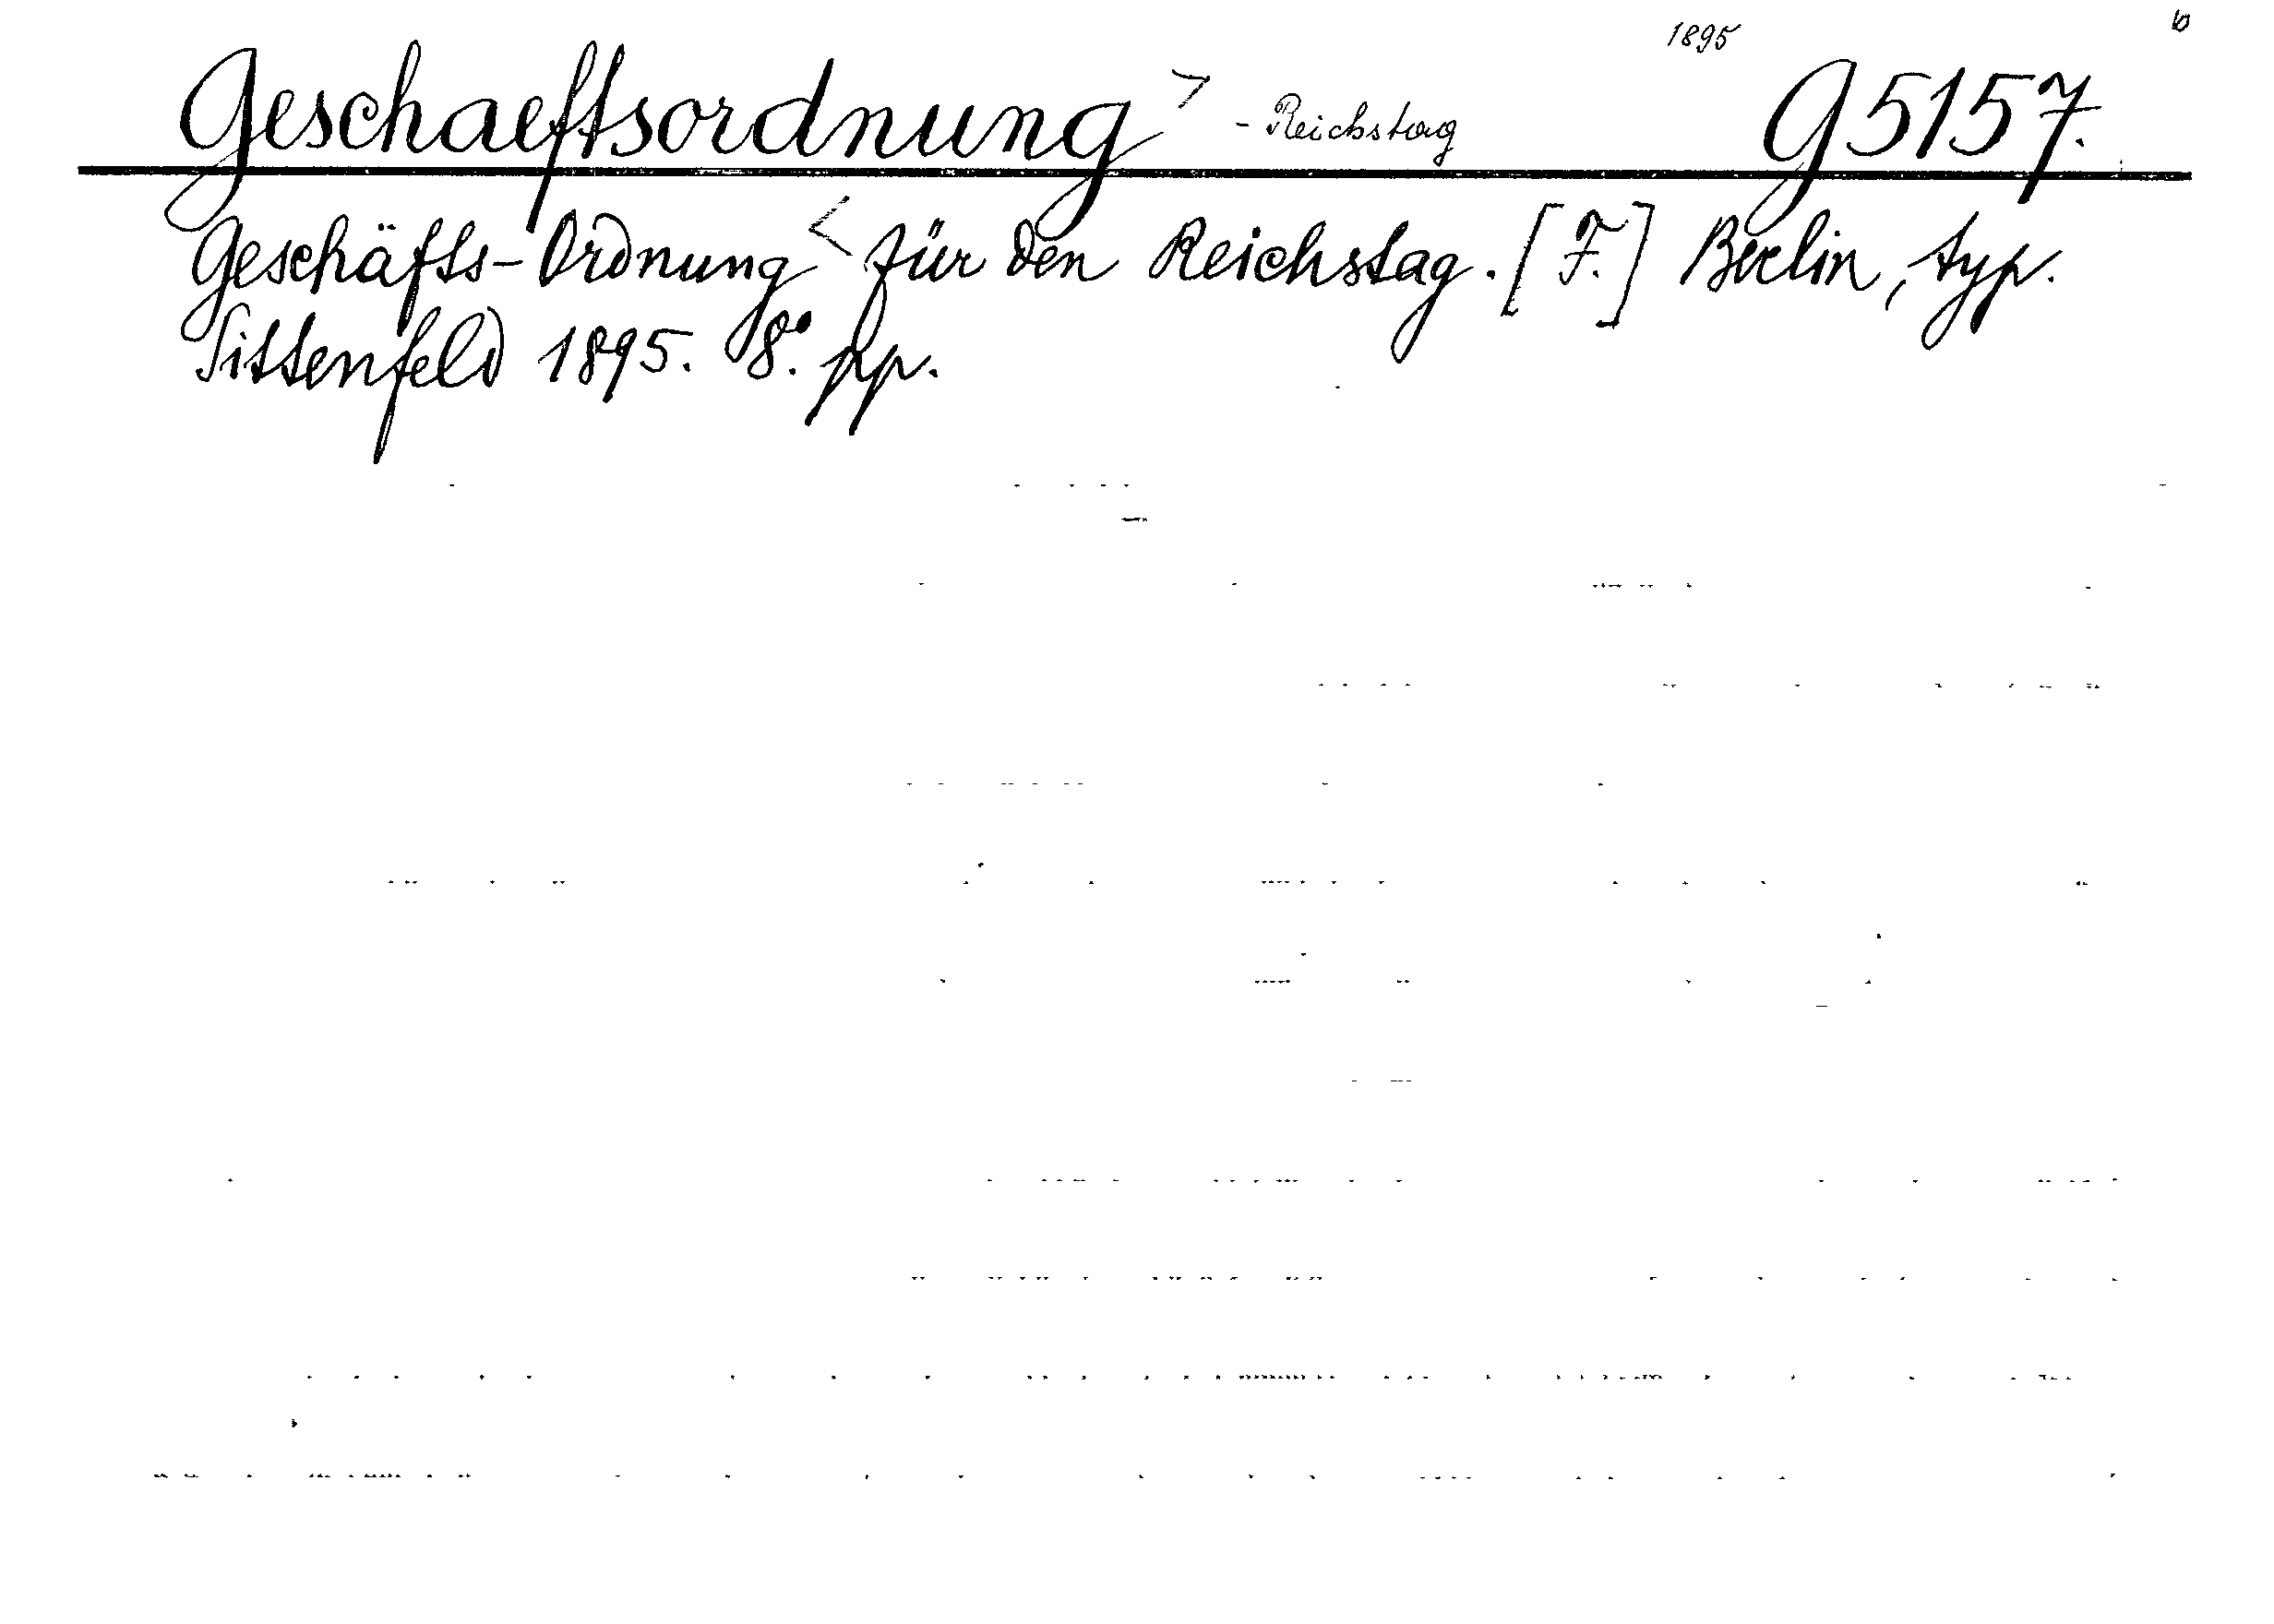 1895 6
Geschaeftsordnung > - Reichstag G 5157.
Geschäfts-Ordnung < für den Reichstag. [F.] Berlin, typ.
Sittenfeld 1895. 8°. pp.